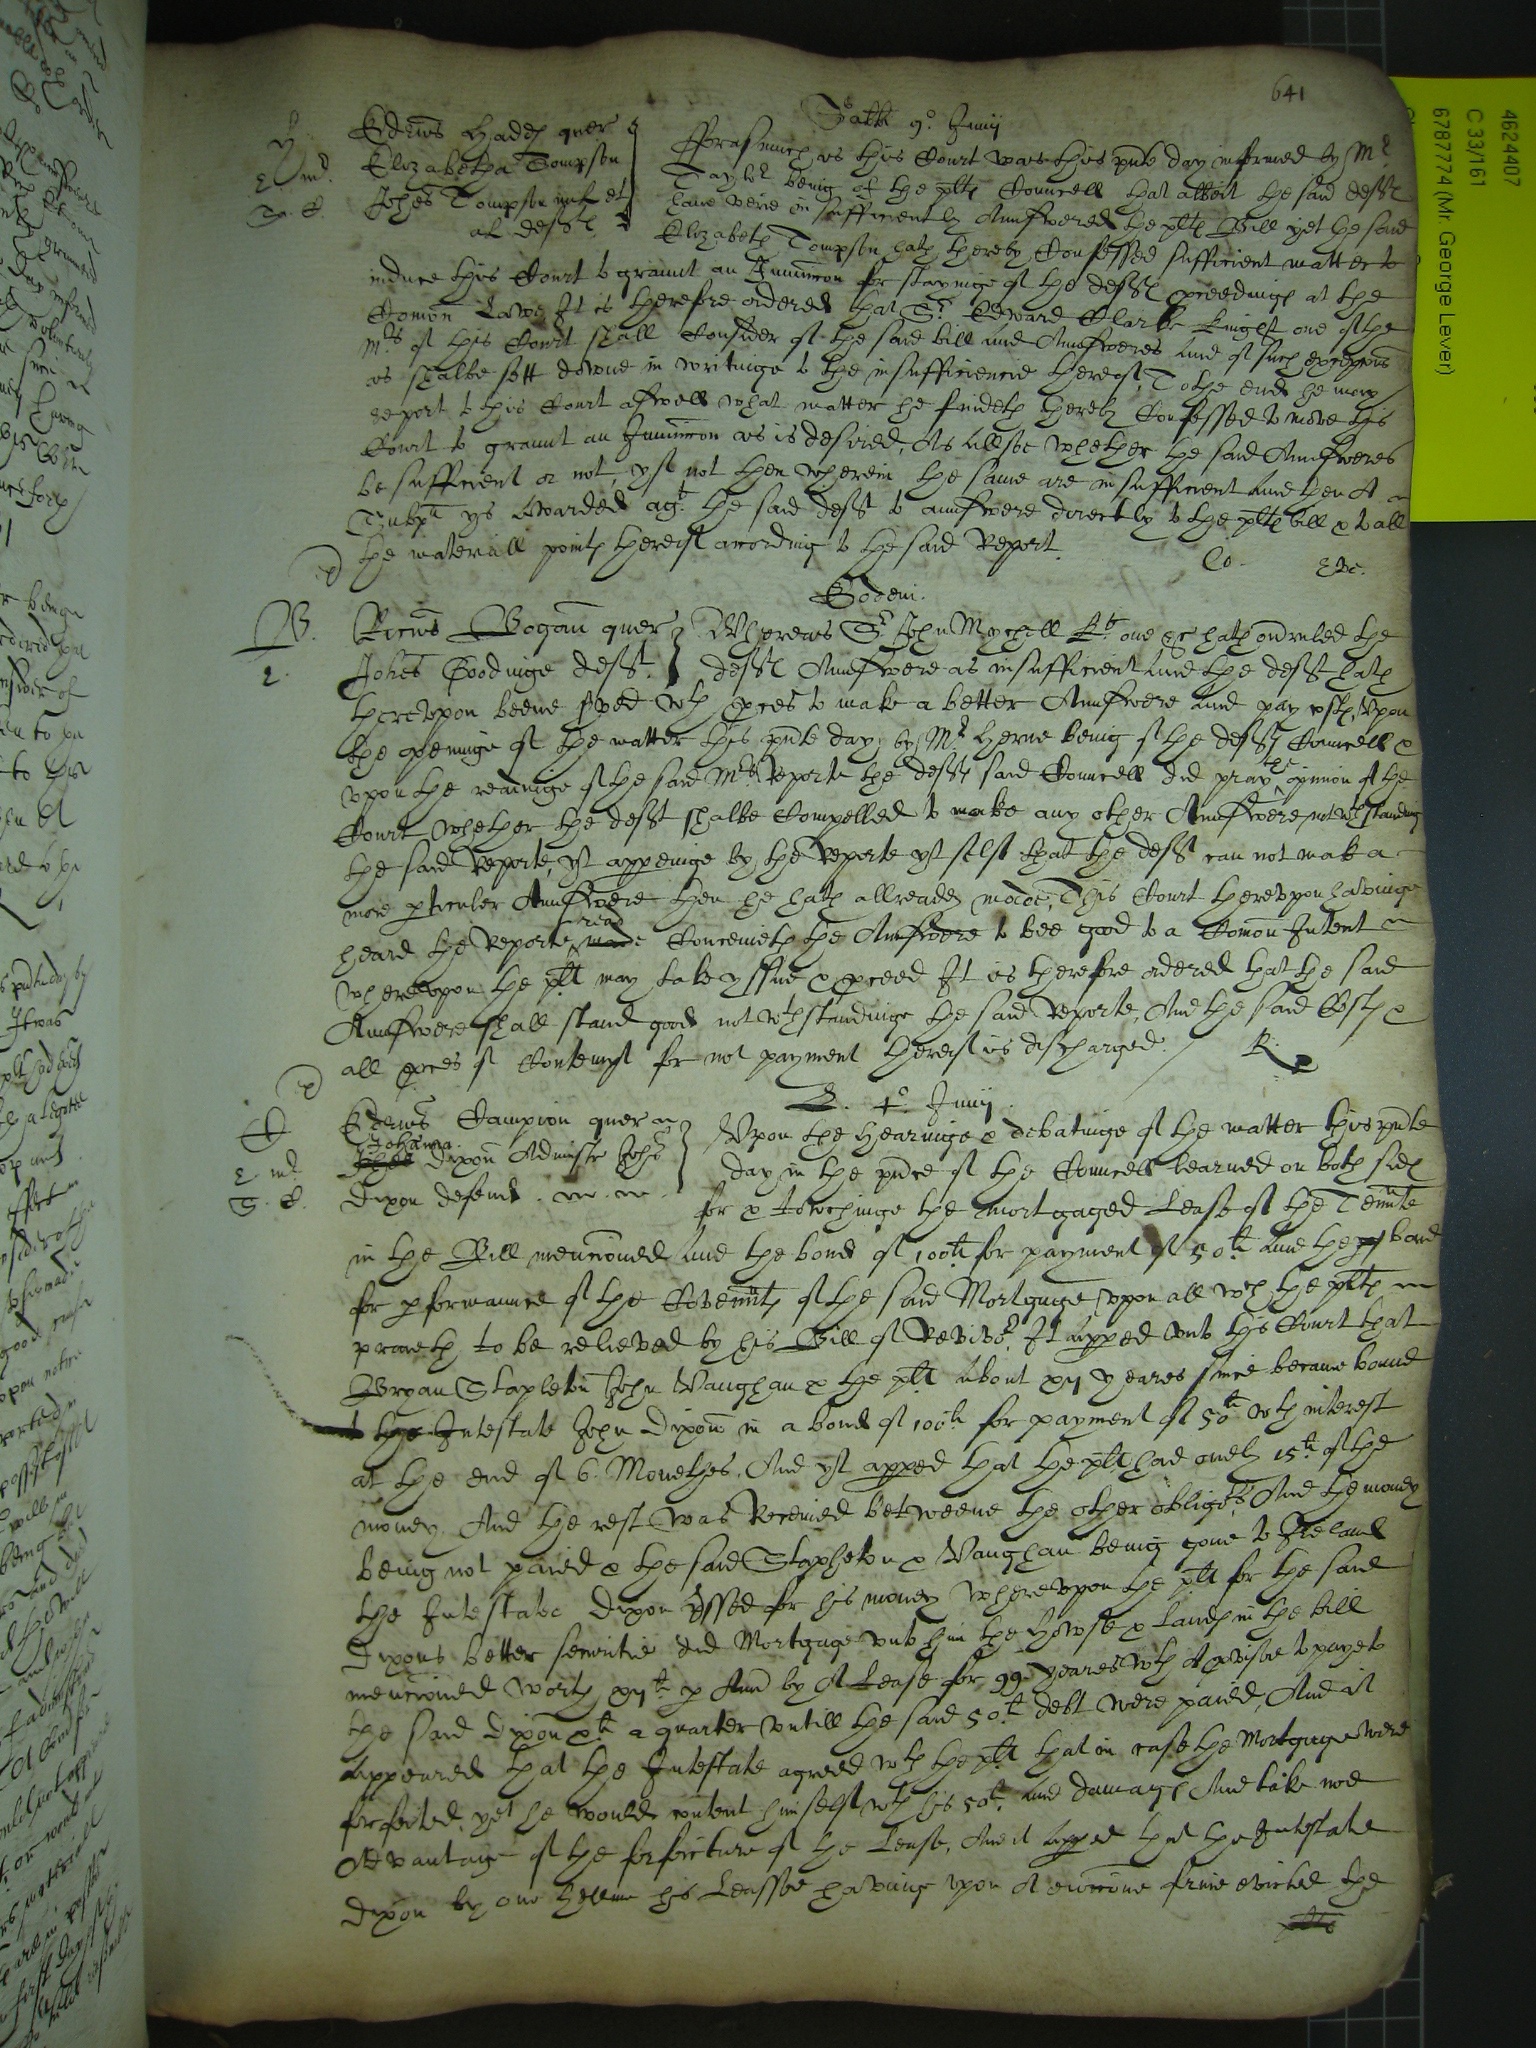 641
4624407
C 33/161
6787774 (Mr. George Lever)
Sabti 9º Junij
Edrus Hadd quer
Elizabetha Tompson
Johes Tompson
al defft
Forasmuch as this Court was this pnte day informed by Mr
Taylr being of the pltes Councell that albeit the said defft
have verie insufficiently Aunswered the pltes Bill yet the said
Elizabeth Tompson hath thereby Confessed sufficient matter to
induce this Court to graunt an Iniunccon for stayinge of the defftes pceedinges at the
Comon Lawe It is therefore ordered that Sr Edward Clarke knight one of the
Mrs of this Court shall Consider of the said bill and Aunsweres and of such excepcons
as shalbe sett downe in writinge to the insufficiencie thereof, To the end he may
report to this Court aswell what matter he findeth therby Confessed to move this
Court to graunt an Iniunccon as is desired, As Allsoe whether the said Aunsweres
be sufficient or not, yf not then wherein the same are insufficient and then A
Subpa ys Awarded agt the said defft to aunswere directly to the pltes bill & to all
the materiall pointes thereof according to the said Report.
Eodem.
B.
Ricus Bogan quer
Johes Goodinge defft.
Whereas Sr John Mychell kt one &c hath ordruled the
defftes Aunswere as insufficient and the defft hath
therevpon beene srved wth pces to make a better Aunswere and pay costes, Vpon
the openinge of the matter this pnte day by Mr Herne being of the defftes Councell &
vpon the readinge of the said Mrs Reporte the defftes said Councell did pray the opinion of the
Court whether the defft shalbe Compelled to make any other Aunswere, notwthstanding
the said Reporte, yt apperinge by the Reporte yt self that the defft can not make a
more pticuler Aunswere then he hath allready made, This Court therevpon havinge
heard the Reporte read Conceiveth the Aunswere to bee good to a Comon Intent
wherevpon the plt may take yssue & pceed It is therefore ordered that the said
Aunswere shall stand good notwthstandinge the said Reporte, And the said Costes &
all pces of Contempt for not payment thereof is discharged. R.
4º Junij
Edrus Campion quer
Johanna Dixon Administr Johis
Dixon defend
Vpon the Hearinge & debatinge of the matter this pnte
day in the pnce of the Councell learned on both sides
for & towchinge the mortgaged Lease of the Temte
in the Bill mencioned and the bond of 100li for payment of 50li and the bond
for pformaunce of the Covenntes of the said Mortgage vpon all wch the plt
prayeth to be releived by his Bill of Revivor, It apped vnto this Court that
Bryan Stapleton John Vaughan & the plt About xvj yeares since became bound
to the Intestate John Dixon in a bond of 100li for payment of 50li wth interest
at the end of 6 Monethes, And yt apped that the plt had onely 15li of the
money, And the rest was Receiued betweene the other obligors, And the money
being not paied & the said Stapleton & Vaughan being gone to Ireland
the Intestate Dixon pssed for his money wherevpon the plt for the said
Dixons better securitie did Mortgage vnto him the howse & landes in the bill
mencioned worth xvjli p Ann by A Lease for 99 yeares wth A pviso to paye to
the said Dixon xli a quarter vntill the said 50li debt were paied, And it
Appeared that the Intestate agreed wth the plt that in case the Mortgage were
forfeited, yet he would content himself wth his 50li and damages And take noe
Advantage of the forfeiture of the Lease, And it Apped that the Intestate
Dixon by one his Leassee havinge vpon A eieccone firme evicted the